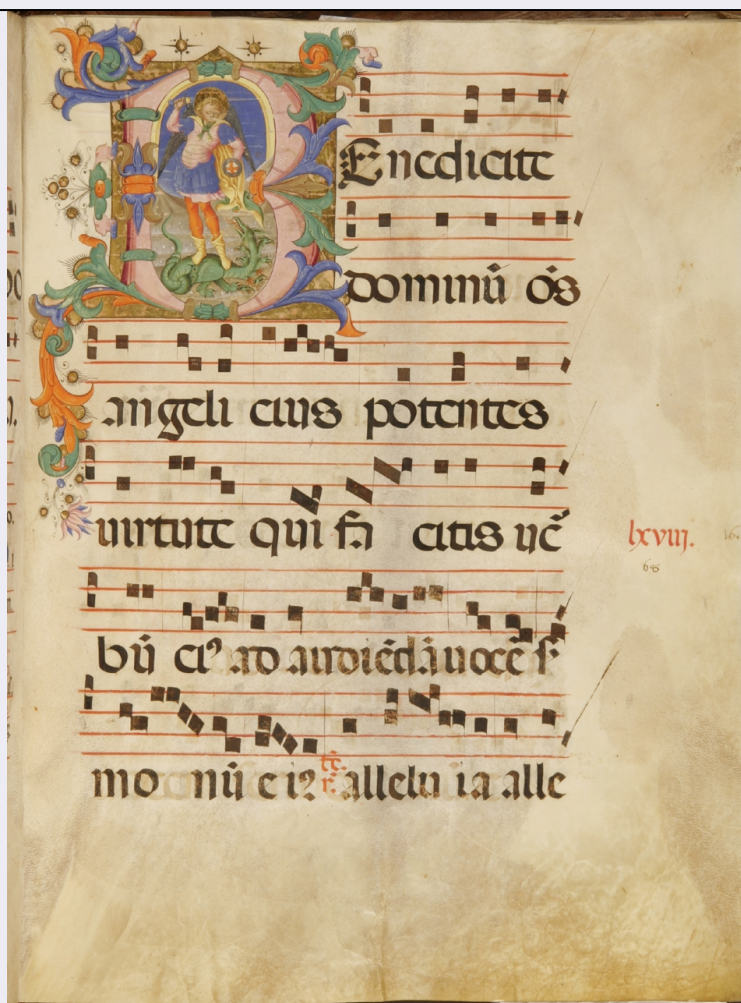 BEnedicite
dominū oı̄s
angeli eius potentes
uirtute qui fa citis uē
lxviij.
68
bū ei⁹ ad audiēdā uocē s̄
mo nū eiꝰ t̄. p̄. allelu ia alle